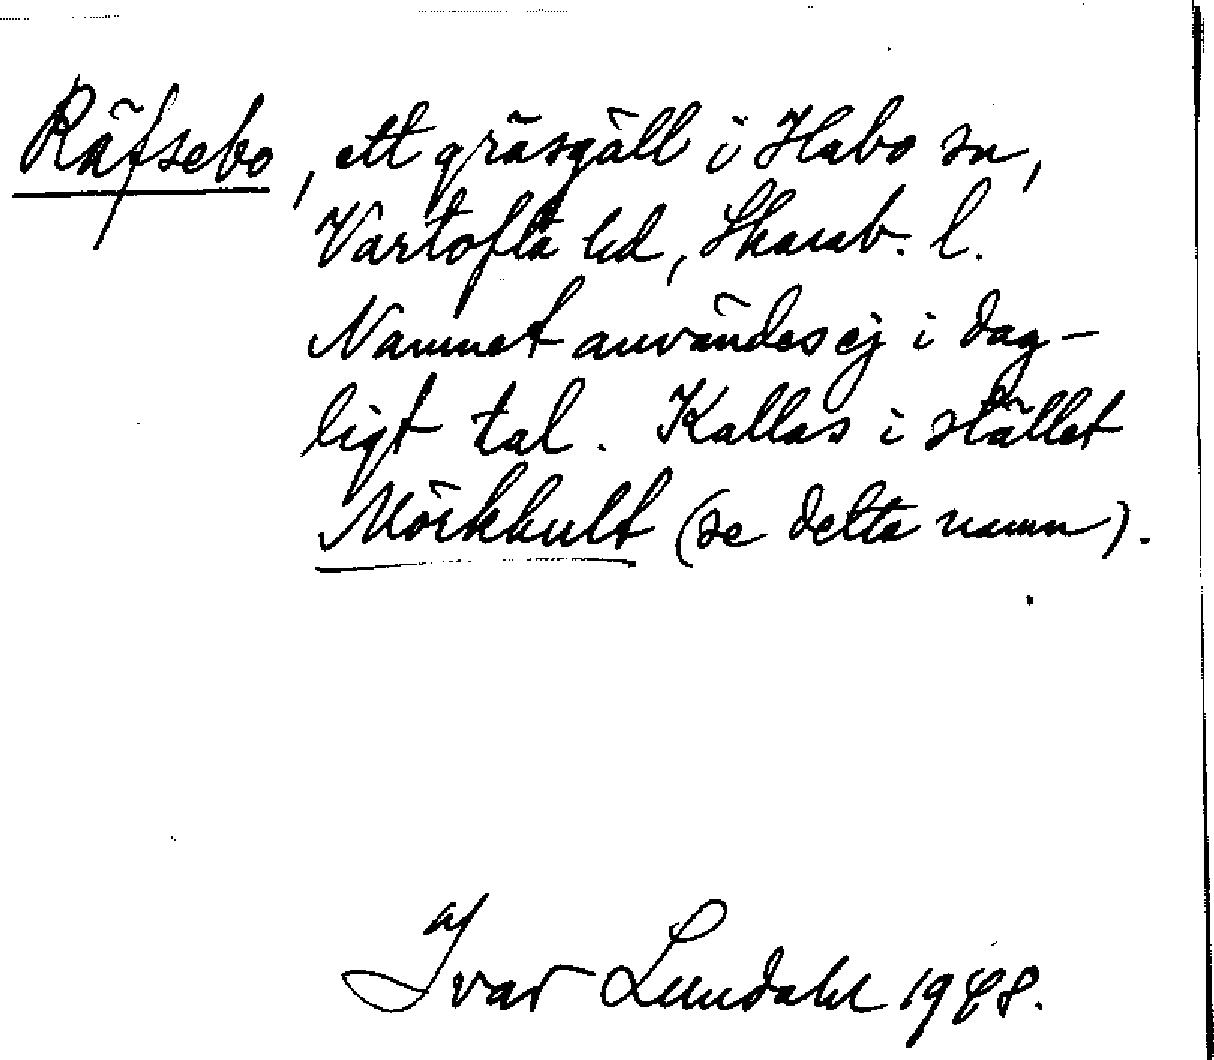 Räfsebo, ett gräsgäll i Habo sn,
Vartofta hd, Skarab. l.
Namnet användes ej i dag-
ligt tal. Kallas i stället
Mörkhult (se detta namn).
Ivar Lundahl 1948.